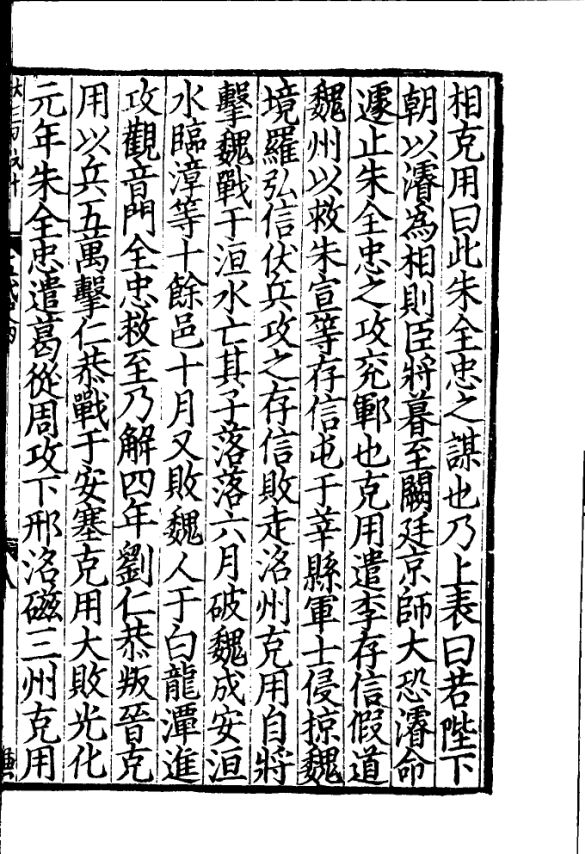 相克用曰此朱全忠之謀也乃上表曰若陛下
朝以濬為相則臣將暮至闕廷京師大恐濬命
遽止朱全忠之攻兖鄆也克用遣李存信假道
魏州以救朱宣等存信屯于莘縣軍士侵掠魏
境羅弘信伏兵攻之存信敗走洺州克用自將
擊魏戰于洹水亡其子落落六月破魏成安洹
水臨漳等十餘邑十月又敗魏人于白龍潭進
攻觀音門全忠救至乃解四年劉仁恭叛晉克
用以兵五萬擊仁恭戰于安塞克用大敗光化
元年朱全忠遣葛從周攻下邢洺磁三州克用